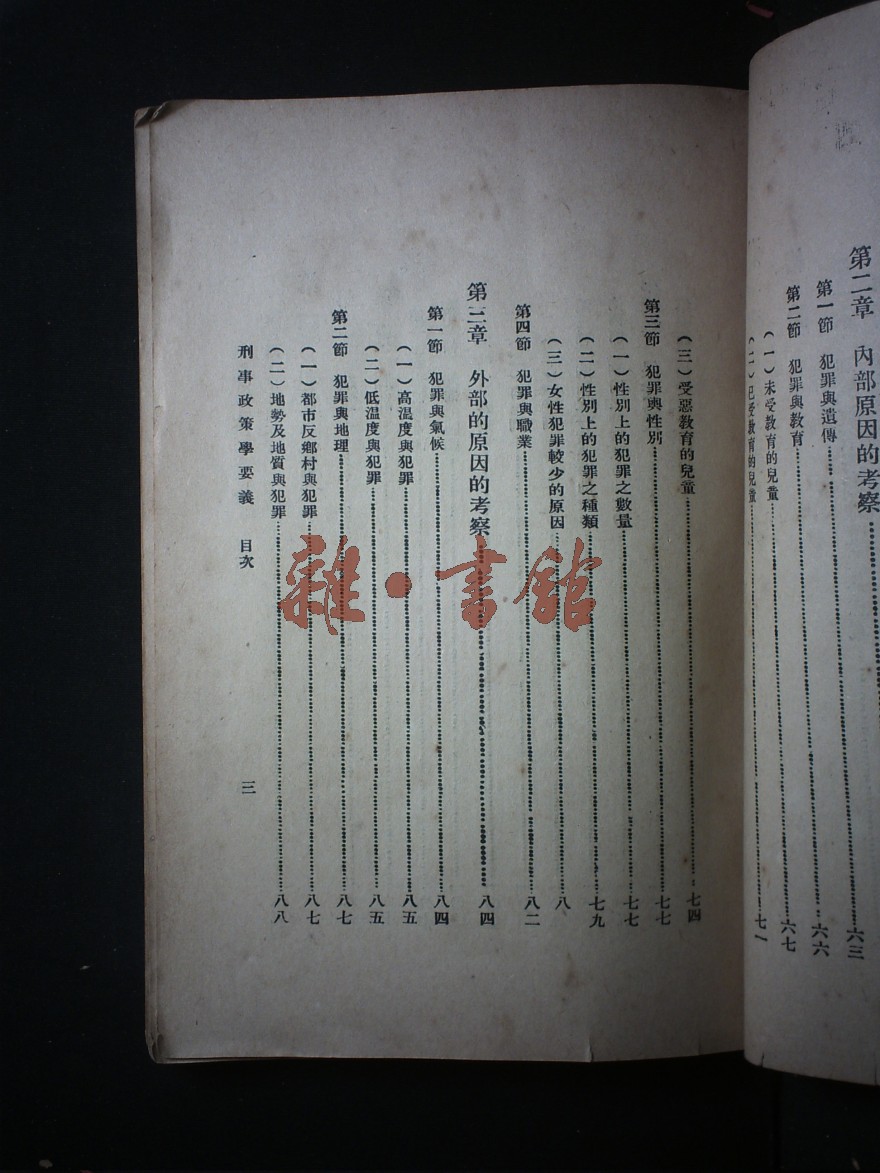 第二章 內部原因的考察……六三
第一節 犯罪與遺傳……六六
第二節 犯罪與教育……六七
（一）未受教育的兒童
（二）已受教育的兒童……七一
（三）受惡教育的兒童……七四
第三節 犯罪與性別……七七
（一）性別上的犯罪之數量……七七
（二）性別上的犯罪之種類……七九
（三）女性犯罪較少的原因……八
第四節 犯罪與職業……八二
第三章 外部的原因的考察……八四
第一節 犯罪與氣候……八四
（一）高溫度與犯罪……八五
（二）低溫度與犯罪……八五
第二節 犯罪與地理……八七
（一）都市反鄉村與犯罪……八七
（二）地勢及地質與犯罪……八八
刑事政策學要義 目次
三
雜·書館